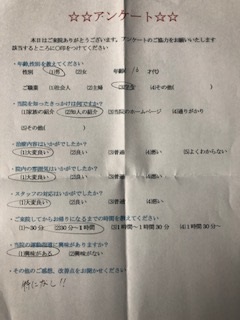 ☆☆アンケート☆☆
本日はご来院ありがとうございます。アンケートのご協力をお願いいたします
該当するところに○印をつけてください
・年齢,性別を教えてください
性別 (1)男 (2)女 年齢( 代)
ご職業 (1)社会人 (2)主婦 (3)学生 (4)その他( )
・当院を知ったきっかけは何ですか?
(1)家族の紹介 (2)知人の紹介 (3)当院のホームページ (4)通りがかり
(5)その他( )
・治療内容はいかがでしたか?
(1)大変良い (2)良い (3)普通 (4)悪い (5)よくわからない
・院内の雰囲気はいかがでしたか?
(1)大変良い (2)良い (3)普通 (4)悪い
・スタッフの対応はいかがでしたか?
(1)大変良い (2)良い (3)普通 (4)悪い
・ご来院してからお帰りになるまでの時間を教えてください
(1)～30分 (2)30分～1時間 (3)1時間～1時間30分 (4)1時間30分～
・当院の に興味がありますか?
(1)興味がある (2)興味がない
・その他のご感想、改善点をお聞かせください
特になし!!